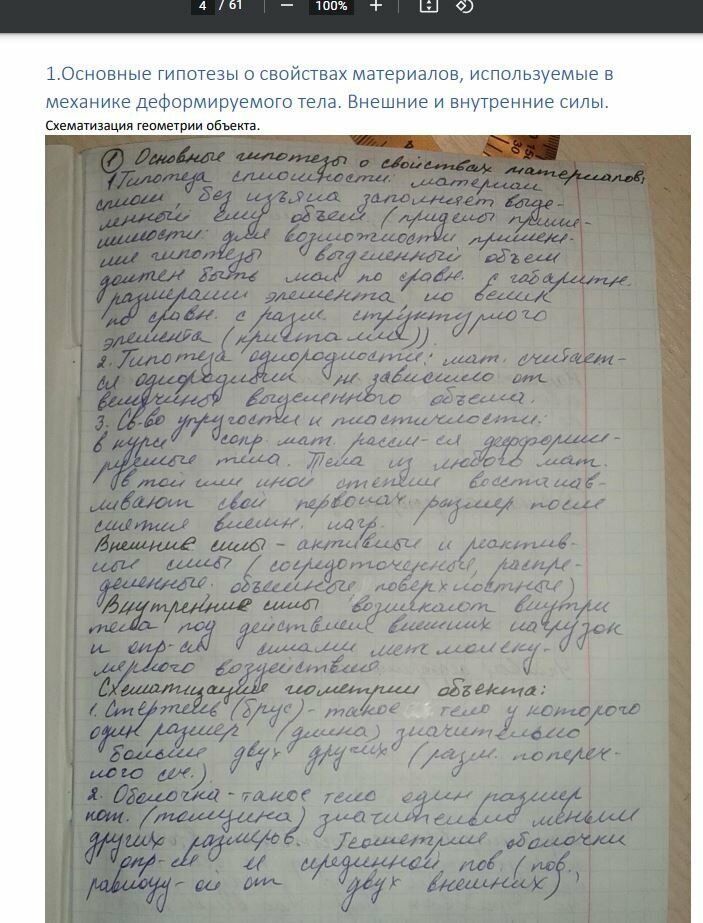 4 / 61 — 100% +
1.Основные гипотезы о свойствах материалов, используемые в
механике деформируемого тела. Внешние и внутренние силы.
Схематизация геометрии объекта.
30 150
1 Основные гипотезы о свойствах материалов;
1.Гипотеза сплошности: материал
сплош, без изъяна заполняет выде-
ленный ему объем (приделы приме-
нимости: для возможности примен-
ния гипотезы выделенный объем
должен быть мал по сравн. с габаритн.
размерами элемента, но велик
по сравн. с разм. структурного
элемента (кристалла)).
2. Гипотеза однородности: мат. считает-
ся однородным не зависимо от
величины выделенного объема.
3. Св-во упругости и пластичности:
в курсе сопр. мат. рассм-ся дефформи-
руемые тела. Тела из любого мат.
в той или иной степени восстанав-
ливают свой первонач. размер после
снятия внешн. нагр.
Внешние силы - активные и реактив-
ные силы (сосредоточенные, распре-
деленные. объемные, поверхностные)
Внутренние силы возникают внутри
тела под действием внешних нагрузок
и опр-ся силами межмолеку-
лярного воздействия
Схематизация геометрии объекта:
1. Стержень (брус) - такое тело у которого
один размер (длина) значительно
больше двух других (разм. попереч-
ного сеч.)
2. Оболочка - такое тело один размер
кот. (толщина) значительно меньше
других размеров. Геометрия оболочки
опр-ся ее серединной пов. (пов.
равноуд-ой от двух внешних),